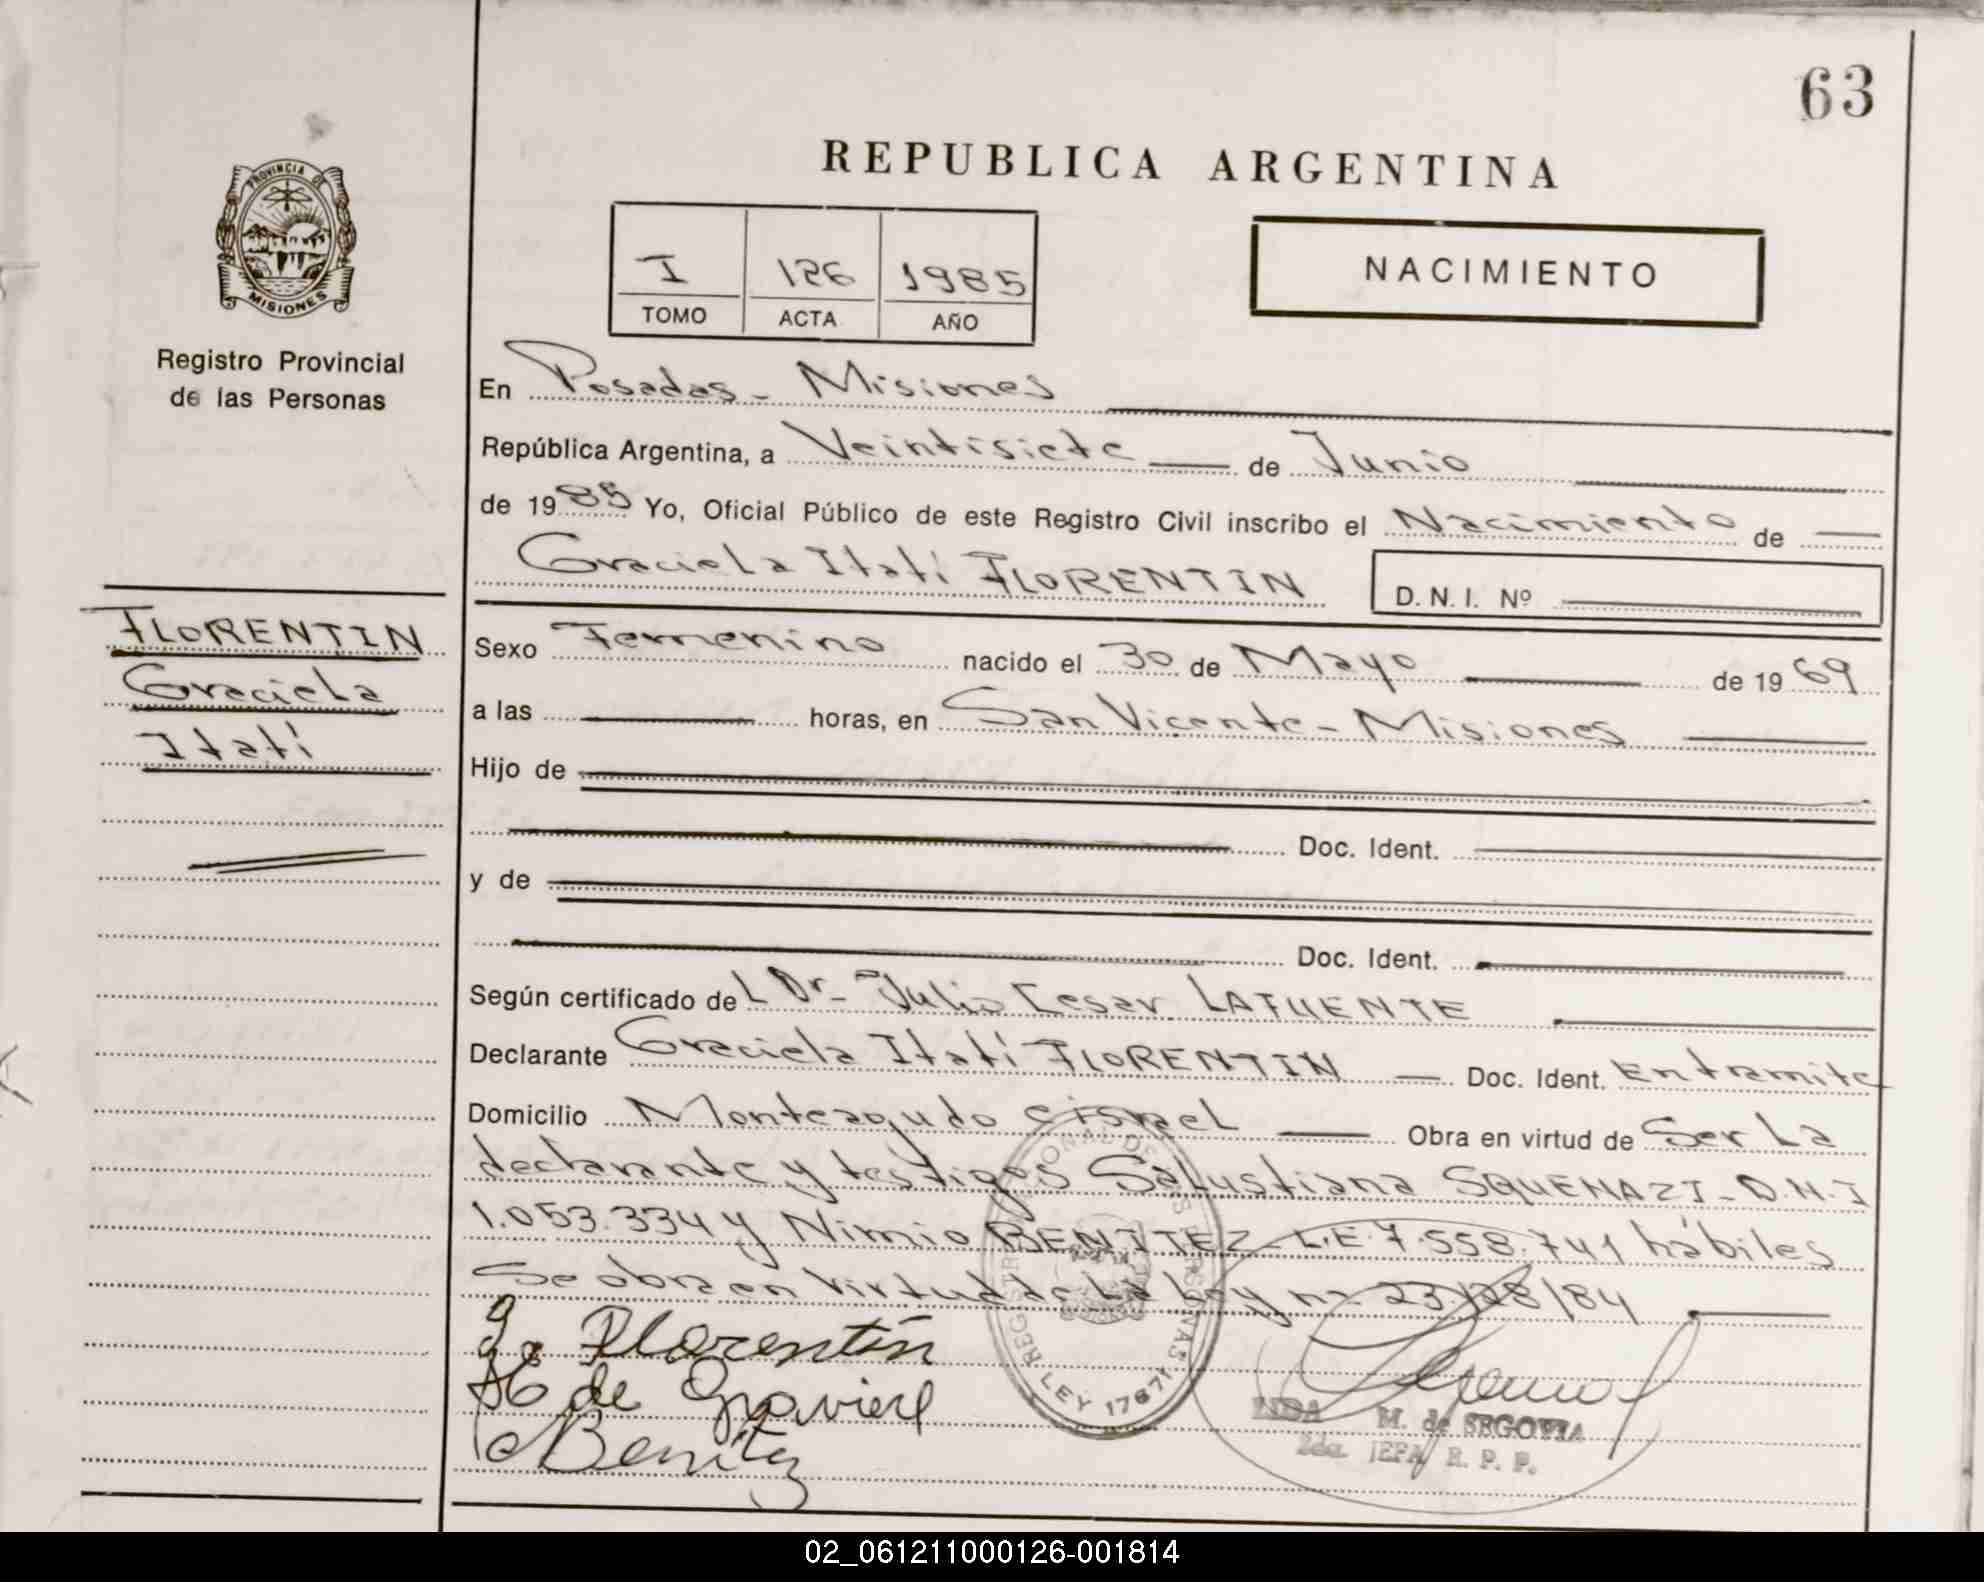 63
PROVINCIA DE
MISIONES
Registro Provincial
de las Personas
REPUBLICA ARGENTINA
I 126 1985
TOMO ACTA AÑO
NACIMIENTO
En Posadas - Misiones
República Argentina, a Veintisiete de Junio
de 1985 Yo, Oficial Público de este Registro Civil inscribo el Nacimiento de
Graciela Itatí FLORENTIN D.N.I. Nº
FLORENTIN
Graciela
Itatí
Sexo Femenino nacido el 30 de Mayo de 1969
a las horas, en San Vicente - Misiones
Hijo de
Doc. Ident.
y de
Doc. Ident.
Según certificado del Dr. Julio Cesar LAFUENTE
Declarante Graciela Itatí FLORENTIN Doc. Ident. En tramite
Domicilio Monteagudo e Israel Obra en virtud de Ser La
declarante y testigos Salustiana SQUENAZI - D.N.I
1.053.334 y Nimio BENITEZ - L.E 7.558.741 hábiles
Se obra en Virtud de La Ley nº 23.128/84
Florentín
de
Benítez
REGISTRO NACIONAL DE LAS PERSONAS
LEY 17671
LIDA M. de SEGOVIA
2da. JEFA R. P. P.
02_061211000126-001814